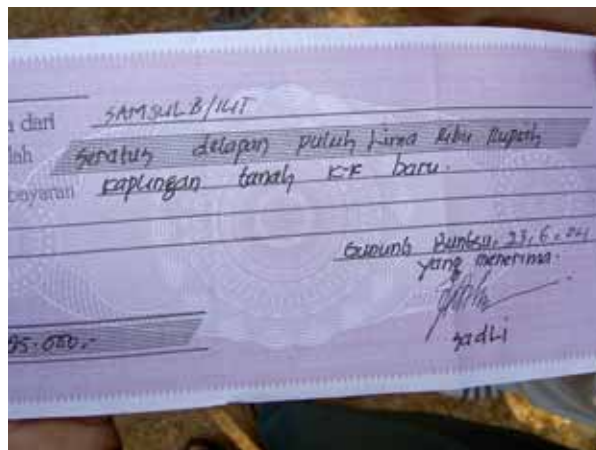 dari SAMSUL B/IUT
lah seratus delapan puluh Lima Ribu Rupiah
bayaran kaplingan tanah K-K baru.
Gunung Bungsu, 23, 6, 04
yang menerima.
sadli
85.000,-